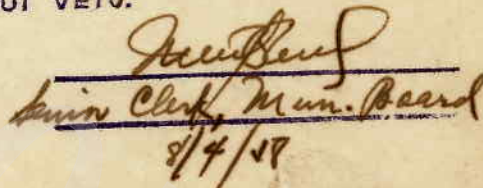 OF VETO.
Senior Clerk, Mun. Board
8/4/58